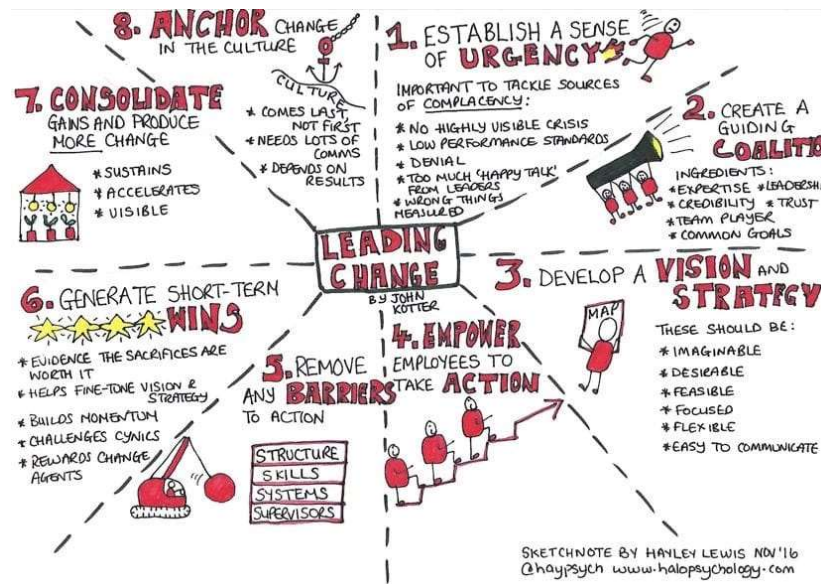 LEADING
CHANGE
BY JOHN
KOTTER
1. ESTABLISH A SENSE
OF URGENCY
IMPORTANT TO TACKLE SOURCES
OF COMPLACENCY:
* NO HIGHLY VISIBLE CRISIS
* LOW PERFORMANCE STANDARDS
* DENIAL
* TOO MUCH 'HAPPY TALK'
FROM LEADERS
* WRONG THINGS
MEASURED
2. CREATE A
GUIDING
COALITIO
INGREDIENTS:
* EXPERTISE * LEADERSHI
* CREDIBILITY * TRUST
* TEAM PLAYER
* COMMON GOALS
3. DEVELOP A VISION AND
STRATEGY
MAP
THESE SHOULD BE:
* IMAGINABLE
* DESIRABLE
* FEASIBLE
* FOCUSED
* FLEXIBLE
* EASY TO COMMUNICATE
4. EMPOWER
EMPLOYEES TO
TAKE ACTION
5. REMOVE
ANY BARRIERS
TO ACTION
STRUCTURE
SKILLS
SYSTEMS
SUPERVISORS
6. GENERATE SHORT-TERM
WINS
* EVIDENCE THE SACRIFICES ARE
WORTH IT
* HELPS FINE-TONE VISION &
STRATEGY
* BUILDS MOMENTUM
* CHALLENGES CYNICS
* REWARDS CHANGE
AGENTS
7. CONSOLIDATE
GAINS AND PRODUCE
MORE CHANGE
* SUSTAINS
* ACCELERATES
* VISIBLE
8. ANCHOR CHANGE
IN THE CULTURE
CULTURE
* COMES LAST,
NOT FIRST
* NEEDS LOTS OF
COMMS
* DEPENDS ON
RESULTS
SKETCHNOTE BY HAYLEY LEWIS NOV'16
@haypsych www.halopsychology.com